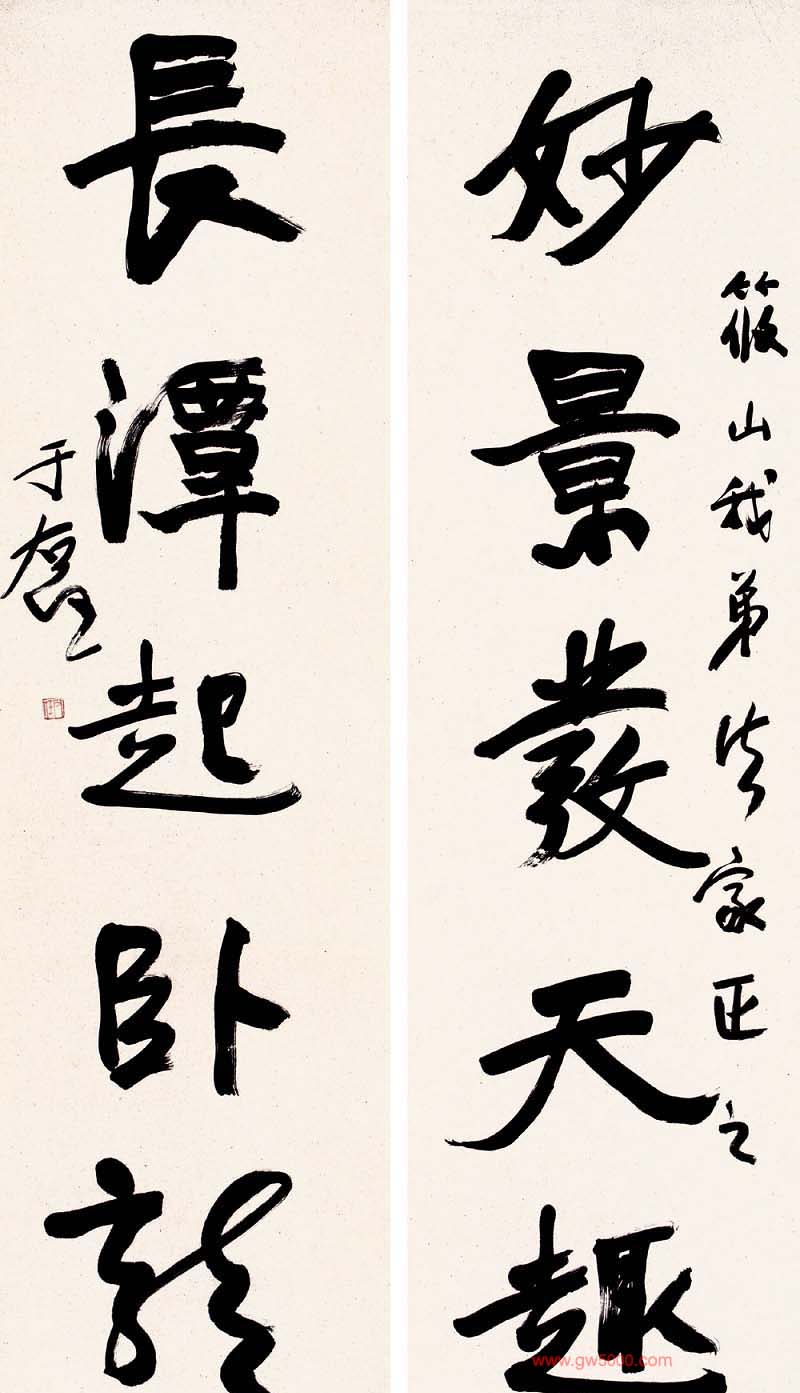 筱山我弟法家正之
妙景發天趣
長潭起卧龍
于右任
www.gw5000.com